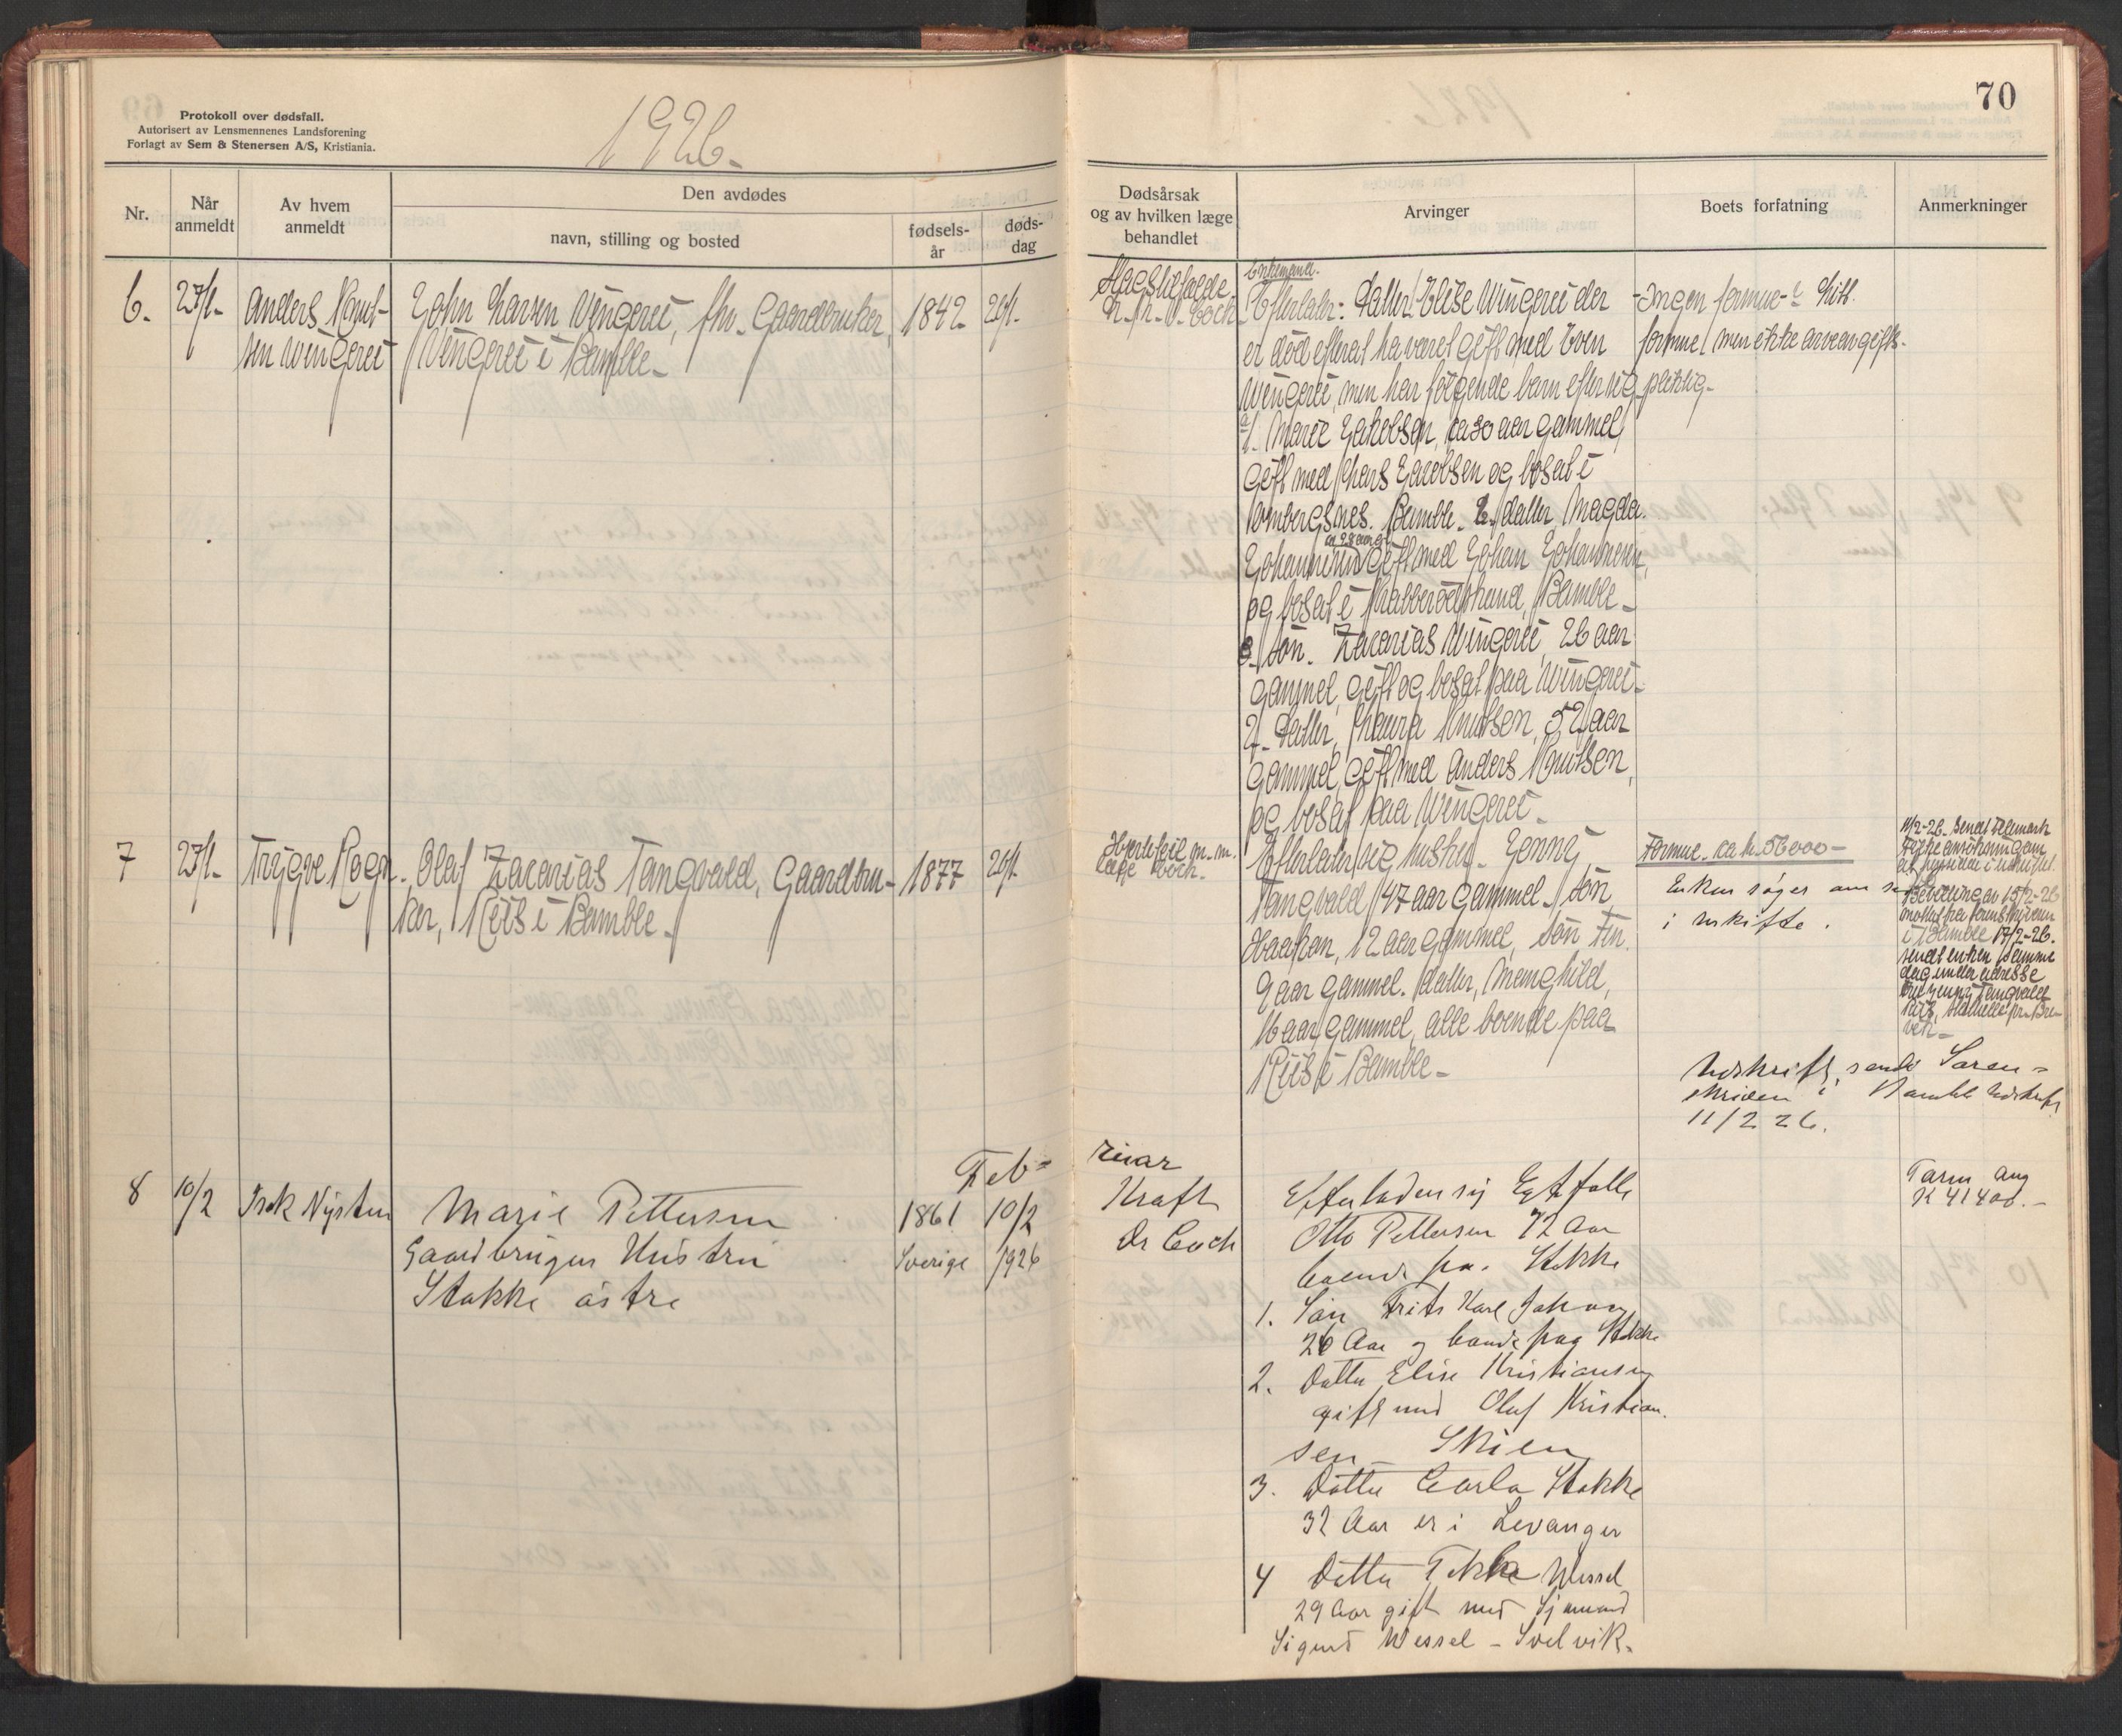 Protokoll over dødsfall.
Autorisert av Lensmennenes Landsforening
Forlagt av Sem & Stenersen A/S, Kristiania.
1926.
70
Nr.
Når anmeldt
Av hvem anmeldt
Den avdødes
navn, stilling og bosted
fødsels-år
døds-dag
Dødsårsak og av hvilken læge behandlet
Arvinger
Boets forfatning
Anmerkninger
6.
27/1-
Anders Knut-
sen Wingerei
John Larsen Wingerei, fhv. Gaardbruker,
Wingerei i Bamble-
1842
20/1-
Coch
Enkemand.
Efterlater: Datter: Elise Wingerei der
er død efterat ha været gift med Even
Wingerei, men har følgende barn efter sig
1. Marie Jakobsen, ca 30 aar gammel,
gift med Lars Jacobsen og bosat i
Bamble. 2. datter, Magda
ca 28 aar gl
Johannesen gift med Johan Johannesen,
og bosat i Krabberødstrand, Bamble-
3. søn. Zacarias Wingerei, 26 aar
gammel, gift og bosat paa Wingerei-
2- Datter, Laura Knutsen, 52 aar
gammel, gift med Anders Knutsen,
og bosat paa Wingerei-
-Ingen formue-
formue men ikke arveavgifts-
pliktig-
7
27/1-
Trygve Rogn
Olaf Zacarias Tangvald, Gaardbru-
ker, Riis i Bamble-
1877
20/1
Hjertefeil m.m.
læge Coch-
Efterlater sig hustru- Jenny
Tangvald 47 aar gammel. Søn
Haakon, 12 aar gammel, Søn Fin
9 aar gammel. datter, Manghild,
16 aar gammel, alle boende paa
Riis i Bamble-
Formue- ca kr. 56000-
Enken søger om
i uskifte.
11/2-26. Sendt Telemark
Bevilling av 15/2-26
i Bamble 17/2-26.
sendt enken samme
dag under adresse
Fru Jenny Tangvald
Riis, Stathelle pr. Bre-
vik-
Utskrift sendt Soren-
skriven i Bamble
11/2 26.
Feb=
ruar
8
10/2
Isak Nysten
Marie Pettersen
Gaardbrugers Hustru
Stokke østre
1861
Sverige
10/2
1926
Kraft
Dr Coch
Efterladen sig Egtefelle
Otto Pettersen 72 Aar
boende pa. Stokke
1. Søn Frits Karl Johan
26 Aar og boende paa Stokke
2. Datter Elise Kristiansen
gift med Olaf Kristian-
sen Skien
3. Datter Carla Stokke
32 Aar er i Levanger
4 Datter Wessel
29 Aar gift med Sjømand
Sigurd Wessel - Svelvik.
K 41400.-